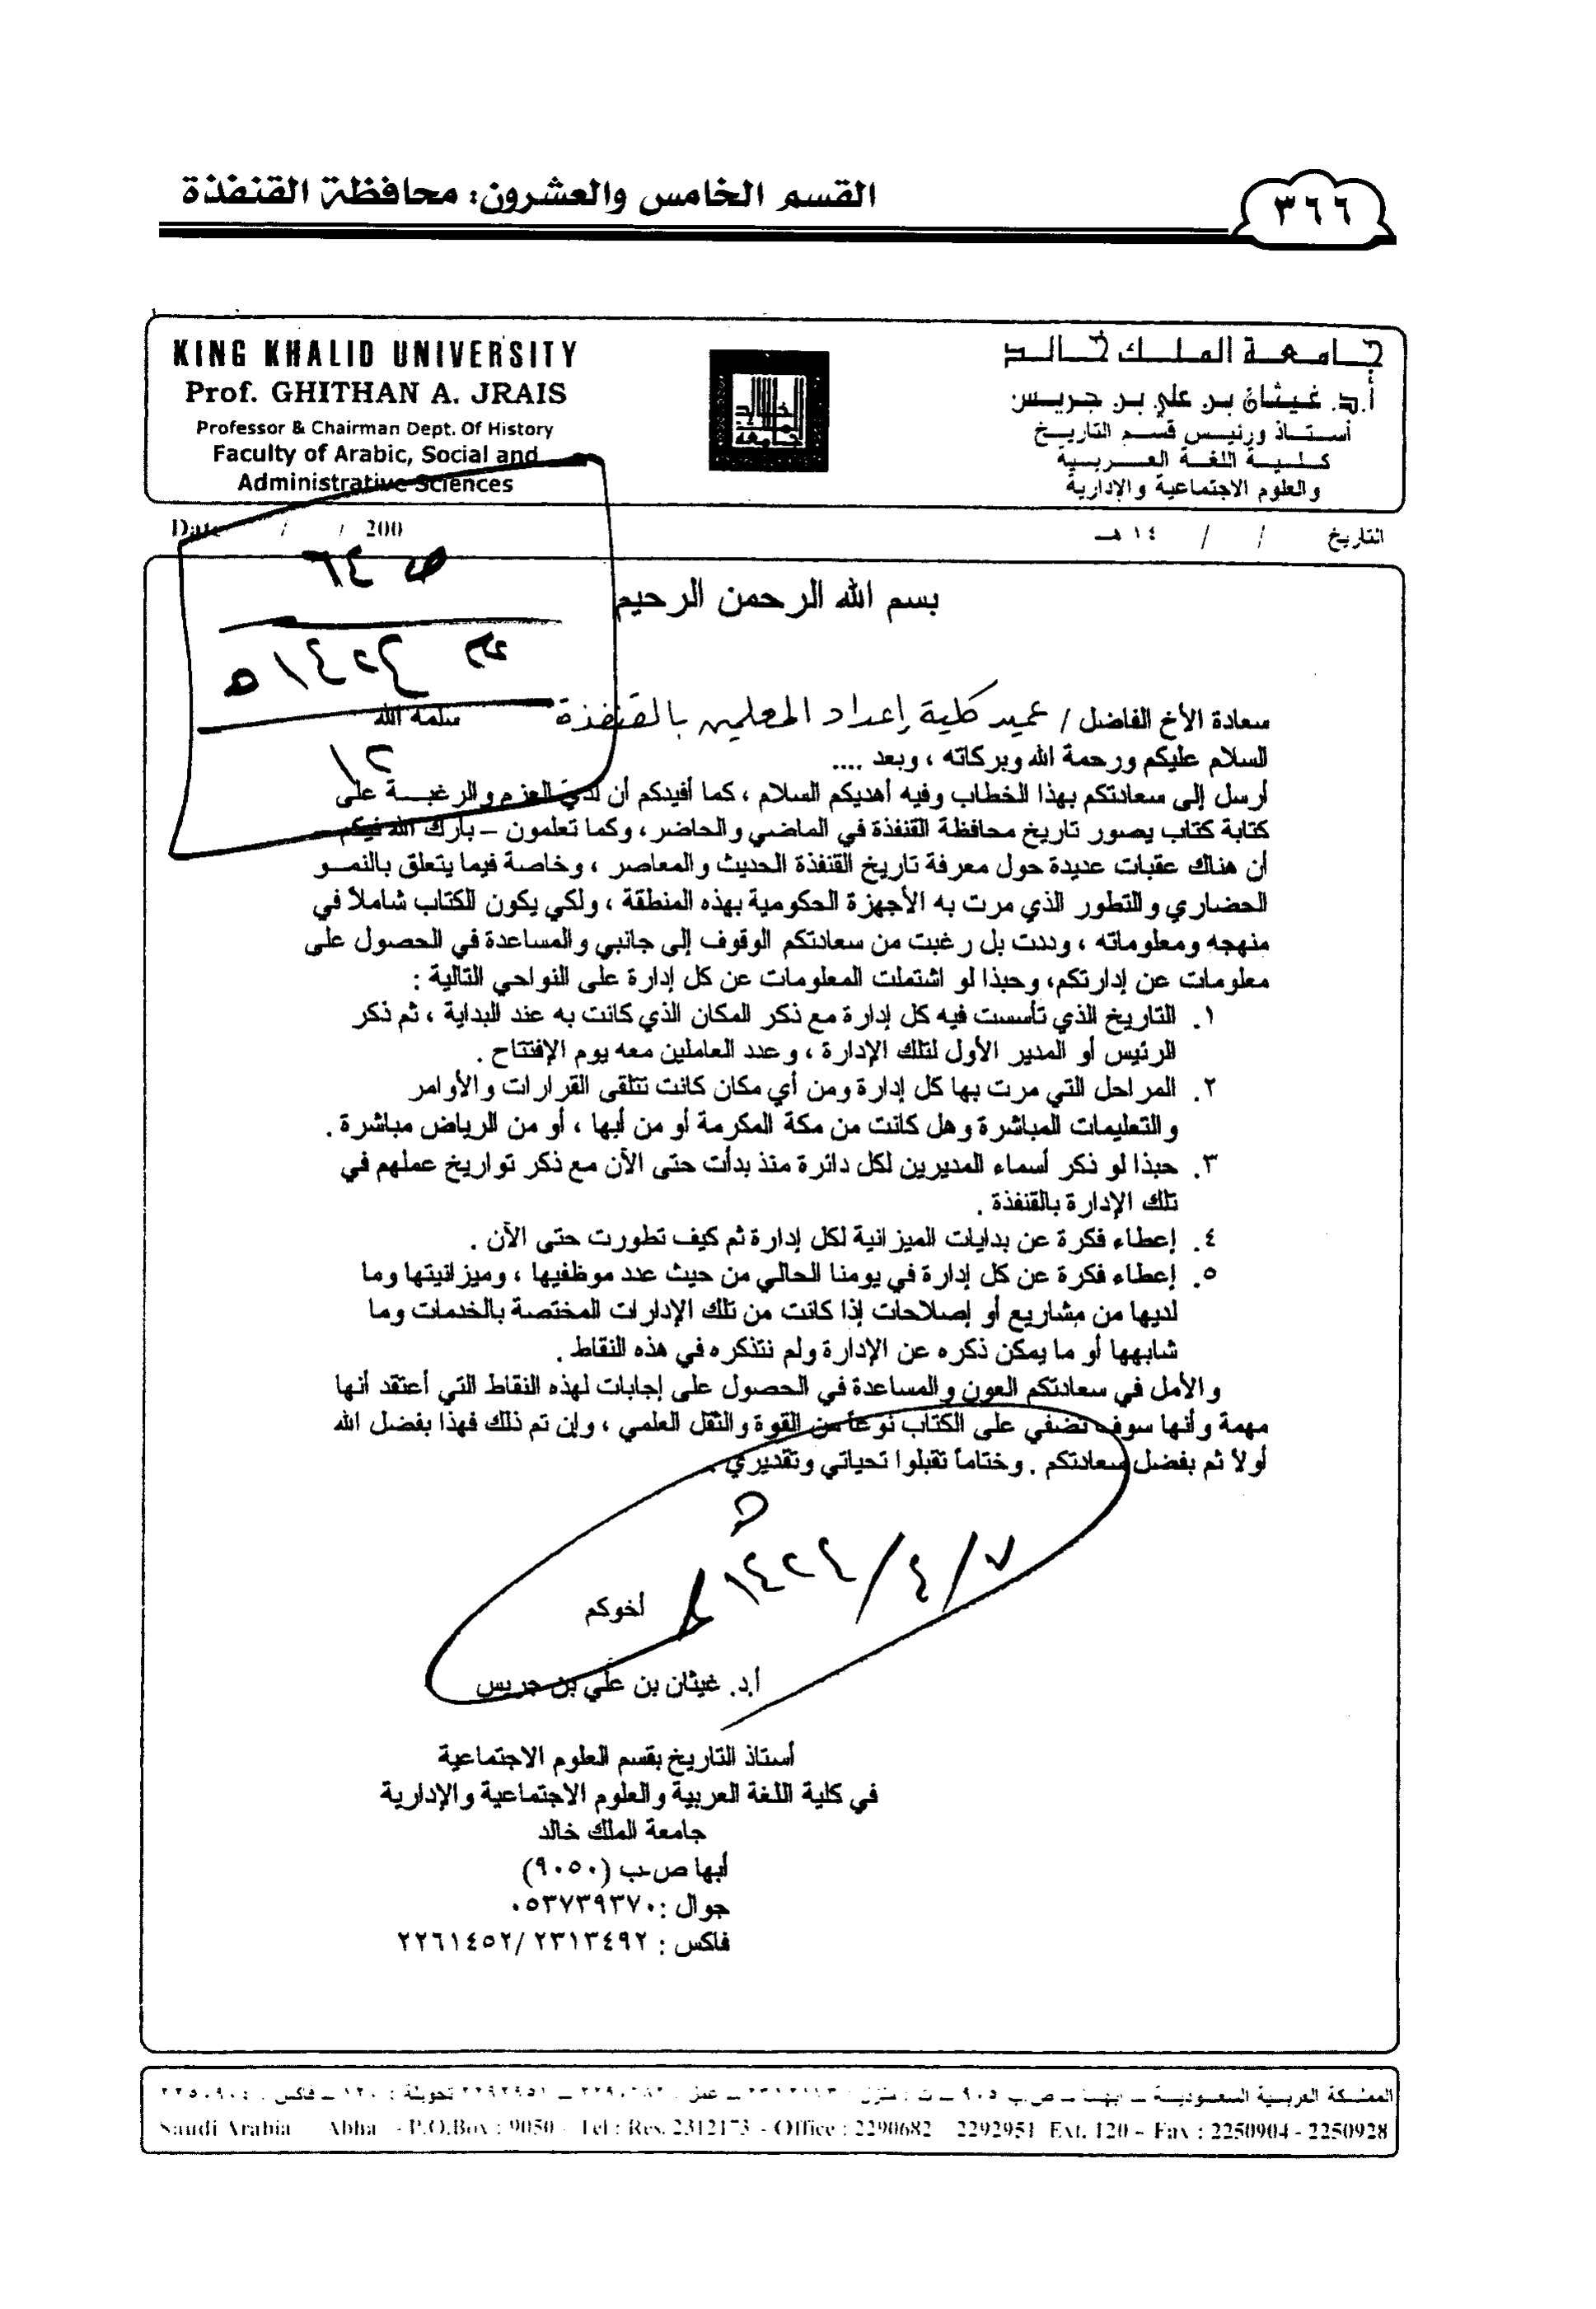 القسم الخامس والعشرون: محافظة القنفذة
٣٦٦
جامعة الملك خالد
أ.د. غيثان بن علي بن جريس
أستاذ ورئيس قسم التاريخ
كلية اللغة العربية
والعلوم الاجتماعية والإدارية
KING KHALID UNIVERSITY
Prof. GHITHAN A. JRAIS
Professor & Chairman Dept. Of History
Faculty of Arabic, Social and
Administrative Sciences
التاريخ / / ١٤هـ
Date / / 200
بسم الله الرحمن الرحيم
سعادة الأخ الفاضل / عميد كلية إعداد المعلمين بالقنفذة سلمه الله
السلام عليكم ورحمة الله وبركاته ، وبعد ....
أرسل إلى سعادتكم بهذا الخطاب وفيه أهديكم السلام ، كما أفيدكم أن لدي العزم والرغبة على
كتابة كتاب يصور تاريخ محافظة القنفذة في الماضي والحاضر ، وكما تعلمون – بارك الله فيكم –
أن هناك عقبات عديدة حول معرفة تاريخ القنفذة الحديث والمعاصر ، وخاصة فيما يتعلق بالنمو
الحضاري والتطور الذي مرت به الأجهزة الحكومية بهذه المنطقة ، ولكي يكون الكتاب شاملاً في
منهجه ومعلوماته ، وددت بل رغبت من سعادتكم الوقوف إلى جانبي والمساعدة في الحصول على
معلومات عن إدارتكم، وحبذا لو اشتملت المعلومات عن كل إدارة على النواحي التالية :
١. التاريخ الذي تأسست فيه كل إدارة مع ذكر المكان الذي كانت به عند البداية ، ثم ذكر
الرئيس أو المدير الأول لتلك الإدارة ، وعدد العاملين معه يوم الإفتتاح .
٢. المراحل التي مرت بها كل إدارة ومن أي مكان كانت تتلقى القرارات والأوامر
والتعليمات المباشرة وهل كانت من مكة المكرمة أو من أبها ، أو من الرياض مباشرة .
٣. حبذا لو ذكر أسماء المديرين لكل دائرة منذ بدأت حتى الآن مع ذكر تواريخ عملهم في
تلك الإدارة بالقنفذة .
٤. إعطاء فكرة عن بدايات الميزانية لكل إدارة ثم كيف تطورت حتى الآن .
٥. إعطاء فكرة عن كل إدارة في يومنا الحالي من حيث عدد موظفيها ، وميزانيتها وما
لديها من مشاريع أو إصلاحات إذا كانت من تلك الإدارات المختصة بالخدمات وما
شابهها أو ما يمكن ذكره عن الإدارة ولم نتذكره في هذه النقاط .
والأمل في سعادتكم العون والمساعدة في الحصول على إجابات لهذه النقاط التي أعتقد أنها
مهمة وأنها سوف تضفي على الكتاب نوعاً من القوة والثقل العلمي ، وإن تم ذلك فهذا بفضل الله
أولاً ثم بفضل سعادتكم . وختاماً تقبلوا تحياتي وتقديري .
١٤٢٤/٤/٧
أخوكم
أ.د. غيثان بن علي بن جريس
أستاذ التاريخ بقسم العلوم الاجتماعية
في كلية اللغة العربية والعلوم الاجتماعية والإدارية
جامعة الملك خالد
أبها ص.ب (٩٠٥٠)
جوال : ٠٥٣٧٣٩٣٧٠
فاكس : ٢٣١٣٤٩٢ /٢٢٦١٤٥٢
المملكة العربية السعودية – أبها – ص.ب
Saudi Arabia Abha - P.O.Box : 9050 - Tel : Res. 2312173 - Office : 2290682 2292951 Ext. 120 - Fax : 2250904 - 2250928